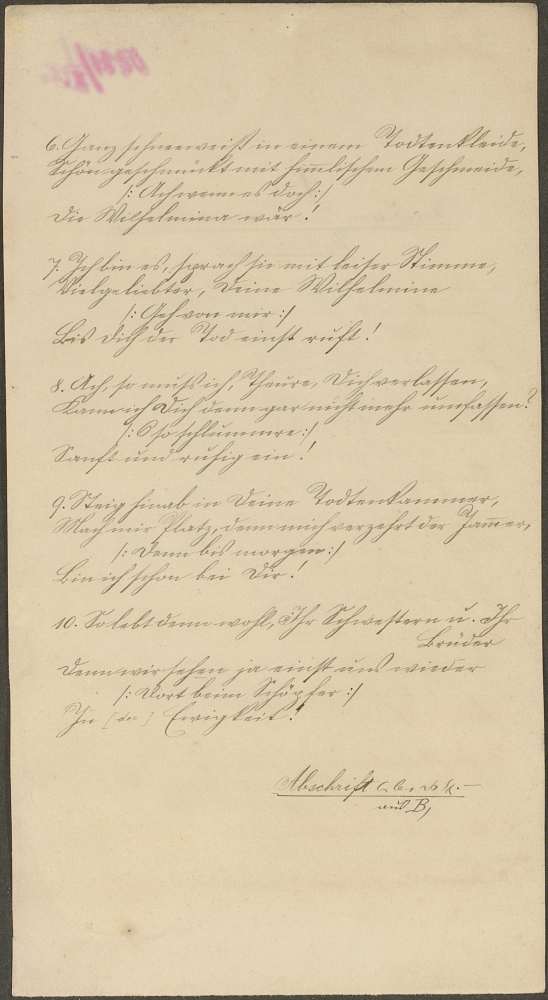 6. Ganz schneeweiß in einem Todtenkleide,
Schön geschmückt mit himlischem Geschmeide,
/: Ach wenn es doch :/
Die Wilhelmina wär!
7. Ich bin es, sprach sie mit leiser Stimme,
Vielgeliebter, Deine Wilhelmine
/: Geh von mir :/
Bis Dich der Tod einst ruft!
8. Ach, so muß ich, Theure, Dich verlassen,
Kann ich Dich denn gar nicht mehr umfassen?
/: O so schlummre :/
Sanft und ruhig ein!
9. Steig hinab in Deine Todtenkammer,
Mach mir Platz, denn mich verzehrt der Jam̄er,
/: Denn bis morgen :/
Bin ich schon bei Dir!
10. So lebt denn wohl, Ihr Schwestern u. Ihr
Brüder
Denn wir sehen ja einst uns wieder
/: Dort beim Schöpfer :/
In [der] Ewigkeit!
Abschrift
aus B,